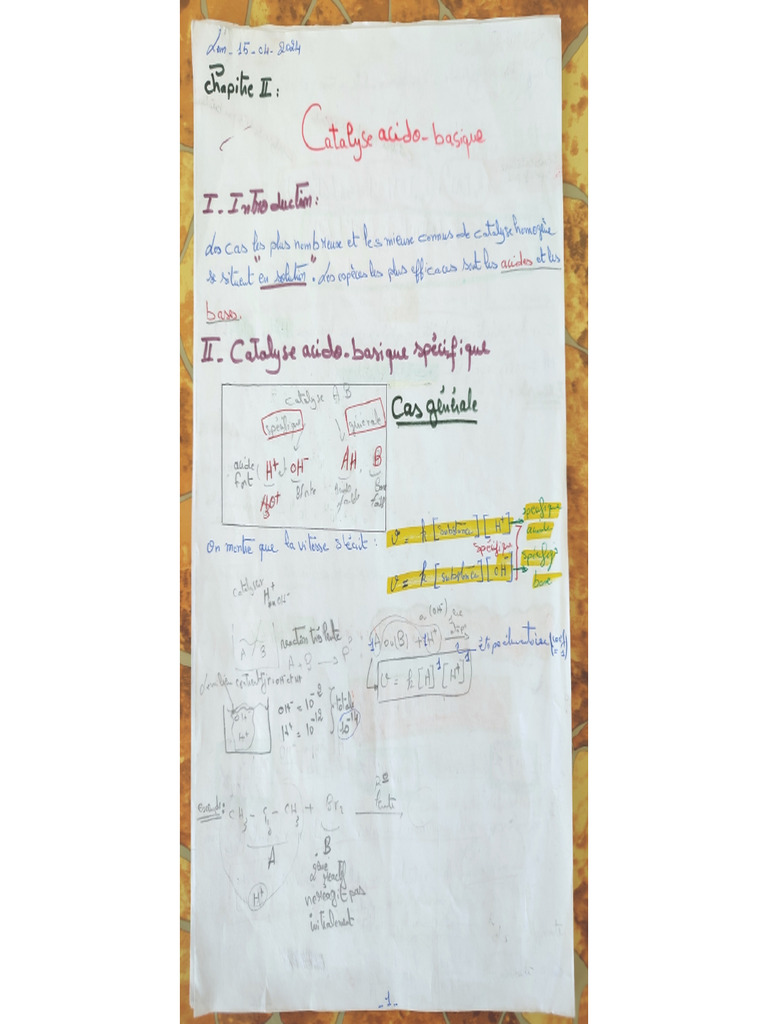 Lun-15-04-2024
Chapitre II:
Catalyse acido-basique
I-Introduction:
Les cas les plus nombreuse et les mieuse connus de catalyse homogène
se situent "en solution". Les espèces les plus efficaces sont les acides et les
bases.
II- Catalyse acido-basique spécifique
Cas générale
catalyse AB
spécifique générale
acide fort H+ OH- AH, B
H3O+ acide faible Base faible
On montre que la vitesse s'écrit:
v = k [substrat] [H+] → spécifique acide
spécifique
v = k [substrat] [OH-] → spécifique base
catalyseur
H+ ou OH-
A B
réaction très lente
A + B → P
1A ou (B) + 1H+
ou (OH-)
étape
v = k [A]1 [H+]1
OH-
H+
OH- = 10-2
H+ = 10-12
totale
10-14
exemple: CH3 - C - CH3 + Br2
O
lente
A
B
H+
réagit pas
initialement
-1-